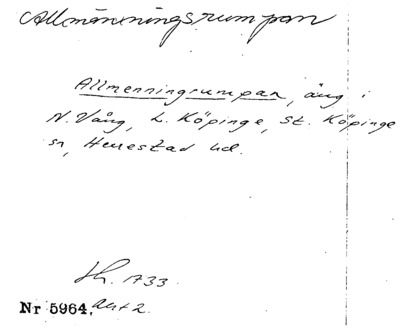 Allmänningsrumpan
Allmenningrumpan, äng i
N. Vång, L. Köpinge, St. Köpinge
sn, Herrestad hd.
Sk. 1733
Nr 5964, akt 2.